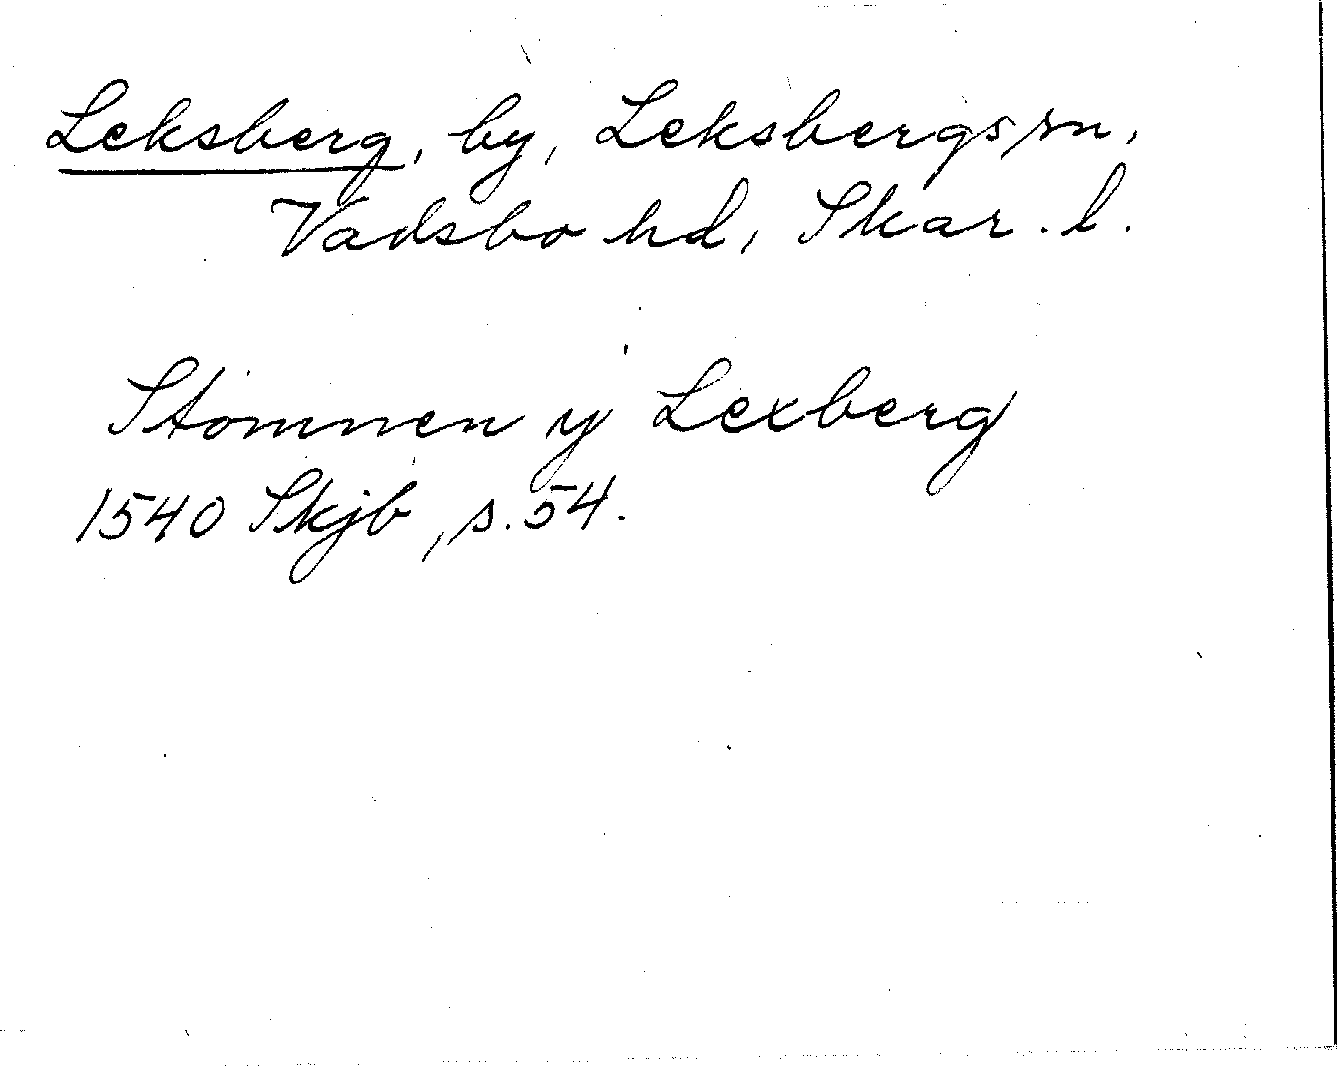 Leksberg, by, Leksbergs sn,
Vadsbo hd, Skar. l.
Stomnen y Lexberg
1540 Skjb, s. 54.